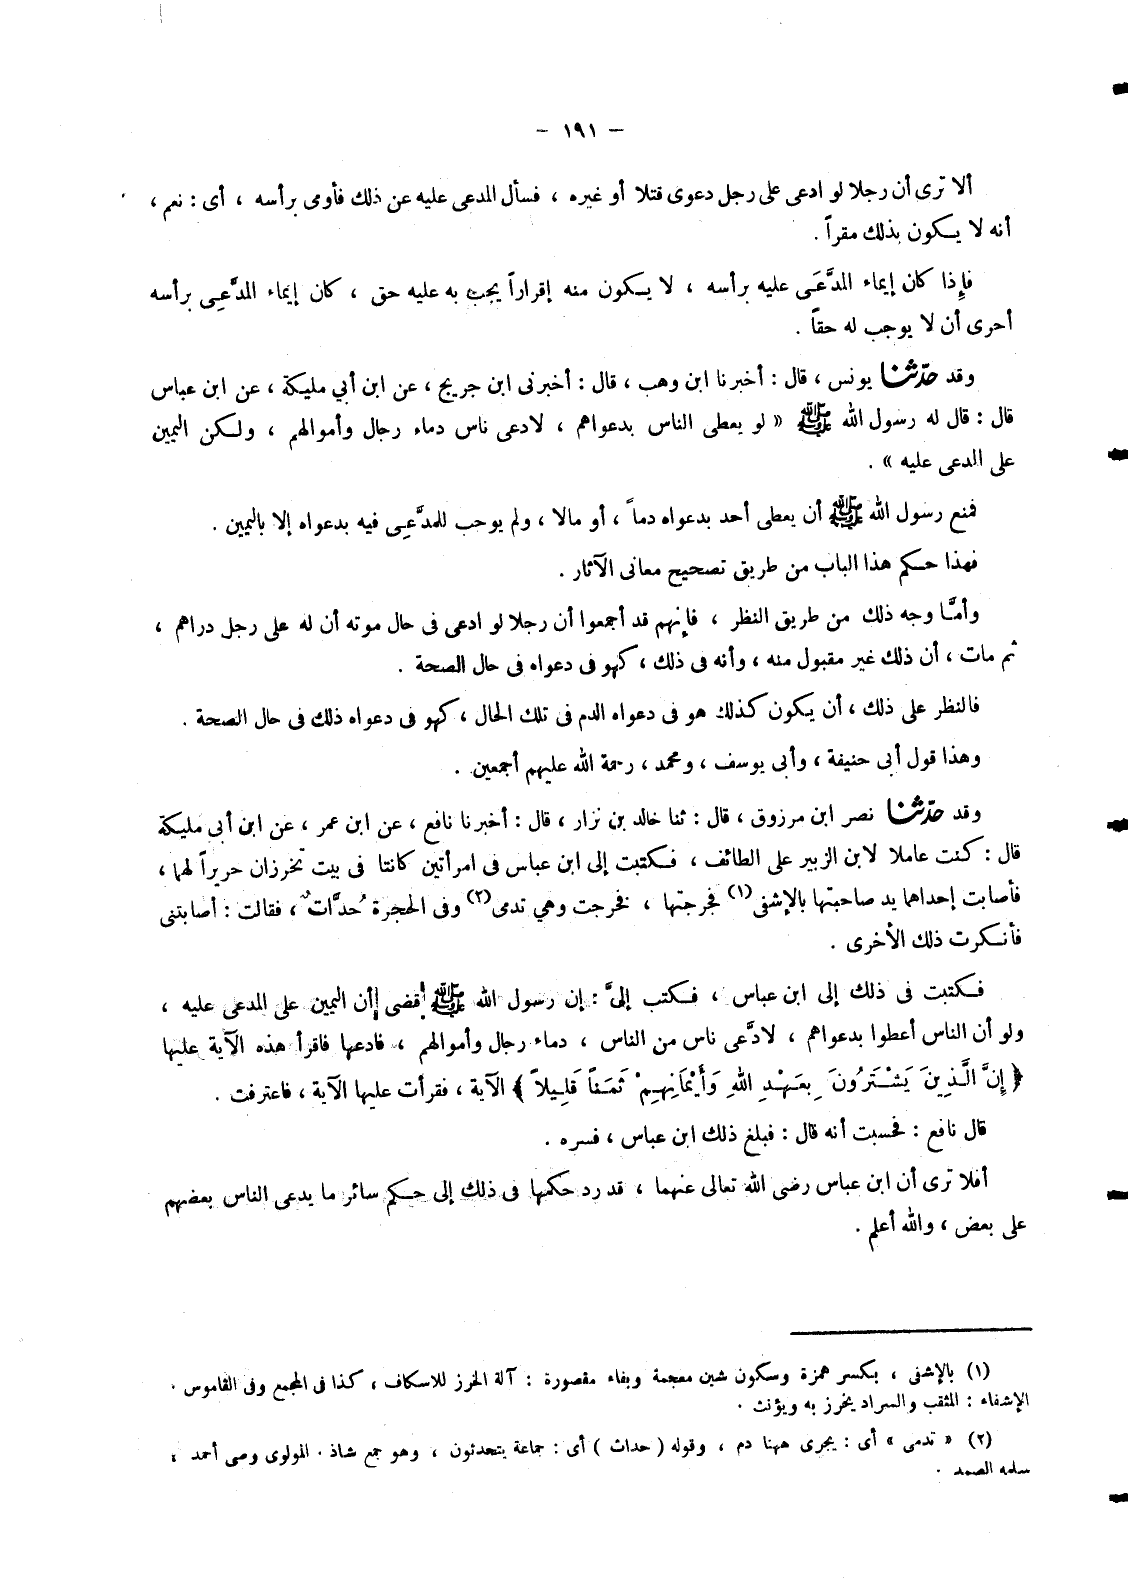 – ١٩١ –
ألا ترى أن رجلا لو ادعى على رجل دعوى قتلا أو غيره ، فسأل المدعى عليه عن ذلك فأومى برأسه ، أى : نعم ،
أنه لا يكون بذلك مقراً .
فإذا كان إيماء المدَّعَى عليه برأسه ، لا يكون منه إقراراً يجب به عليه حق ، كان إيماء المدَّعِى برأسه
أحرى أن لا يوجب له حقاً .
وقد حدّثنا يونس ، قال : أخبرنا ابن وهب ، قال : أخبرنى ابن جريج ، عن ابن أبي مليكة ، عن ابن عباس
قال : قال له رسول الله ﷺ « لو يعطى الناس بدعواهم ، لادعى ناس دماء رجال وأموالهم ، ولكن اليمين
على المدعى عليه » .
فمنع رسول الله ﷺ أن يعطى أحد بدعواه دماً ، أو مالا ، ولم يوجب للمدَّعِى فيه بدعواه إلا باليمين .
فهذا حكم هذا الباب من طريق تصحيح معانى الآثار .
وأمَّا وجه ذلك من طريق النظر ، فإنهم قد أجمعوا أن رجلا لو ادعى فى حال موته أن له على رجل دراهم ،
ثم مات ، أن ذلك غير مقبول منه ، وأنه فى ذلك ، كهو فى دعواه فى حال الصحة .
فالنظر على ذلك ، أن يكون كذلك هو فى دعواه الدم فى تلك الحال ، كهو فى دعواه ذلك فى حال الصحة .
وهذا قول أبى حنيفة ، وأبى يوسف ، ومحمد ، رحمة الله عليهم أجمعين .
وقد حدّثنا نصر ابن مرزوق ، قال : ثنا خالد بن نزار ، قال : أخبرنا نافع ، عن ابن عمر ، عن ابن أبي مليكة
قال : كنت عاملا لابن الزبير على الطائف ، فكتبت إلى ابن عباس فى امرأتين كانتا فى بيت تخرزان حريراً لهما ،
فأصابت إحداهما يد صاحبتها بالإشفى (١) فجرحتها ، فخرجت وهي تدمى (٢) وفى الحجرة حُدَّاث ، فقالت : أصابتنى
فأنكرت ذلك الأخرى .
فكتبت فى ذلك إلى ابن عباس ، فكتب إلىَّ : إن رسول الله ﷺ قضى أن اليمين على المدعى عليه ،
ولو أن الناس أعطوا بدعواهم ، لادَّعى ناس من الناس ، دماء رجال وأموالهم ، فادعها فاقرأ هذه الآية عليها
﴿ إِنَّ الَّذِينَ يَشْتَرُونَ بِعَهْدِ اللهِ وَأَيْمَانِهِمْ ثَمَناً قَلِيلاً ﴾ الآية ، فقرأت عليها الآية ، فاعترفت .
قال نافع : فحسبت أنه قال : فبلغ ذلك ابن عباس ، فسره .
أفلا ترى أن ابن عباس رضى الله تعالى عنهما ، قد رد حكمها فى ذلك إلى حكم سائر ما يدعى الناس بعضهم
على بعض ، والله أعلم .
(١) بالإشفى ، بكسر همزة وسكون شين معجمة وبفاء مقصورة : آلة الخرز للاسكاف ، كذا فى المجمع وفى القاموس .
الإشفاء : المثقب والسراد يخرز به ويؤنث .
(٢) « تدمى » أى : يجرى ههنا دم ، وقوله ( حداث ) أى : جماعة يتحدثون ، وهو جمع شاذ . المولوى وصى أحمد ،
سلمه الصمد .